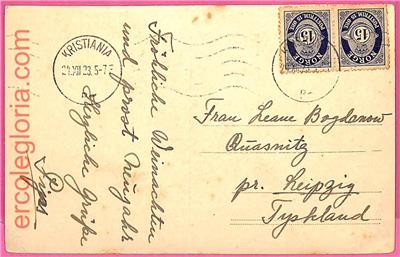 ercolegloria.com
KRISTIANIA
23. 5-7 E
NORGE
15
NORGE
15
Fröhliche Weinachten
und prost Neujahr
Herzliche Grüße
Frau Leane Bogdanow
Quasnitz
pr. Leipzig
Tyskland